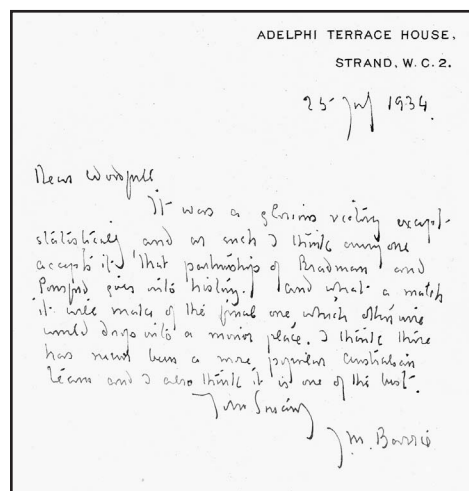 ADELPHI TERRACE HOUSE,
STRAND, W.C.2.
25 July 1934.
Dear Woodfull
It was a glorious victory except
statistically and as such I think everyone
accepts it. That partnership of Bradman and
Ponsford goes into history. And what a match
it will make of the final one which otherwise
would drop into a minor place. I think there
has never been a more popular Australian
team and I also think it is one of the best.
Yours Sincerely
J.M. Barrie